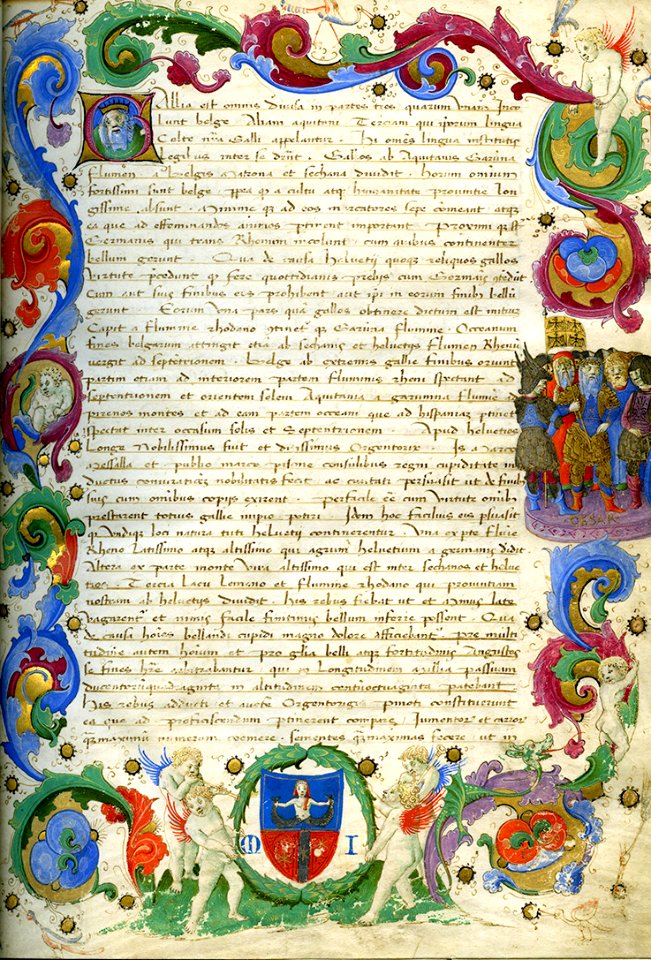 Gallia est omnis divisa in partes tres quarum unam Inco
lunt belge Aliam aquitani Terciam qui ipsorum lingua
Celte nra Galli apelantur Hi omes lingua institutis
legibus inter se drnt Gallos ab Aquitanis Garuna
flumen A belgis Matrona et sechana dividit horum omnium
fortissimi sunt belge ppea qz a cultu atqz humanitate provintie lon
gissime absunt Minime qz ad eos mercatores sepe comeant atqz
ea que ad effeminandos animos ptinent important Proximi qz st
Germanis qui trans Rhenum incolunt cum quibus continenter
bellum gerunt Qua de causa helvetii quoqz reliquos gallos
virtute pcedunt qz fere quottidianis preliis cum Germanis
Cum aut suis finibus eis prohibent aut ipi in eorum finibz bellu
gerunt Eorum una pars qua gallos obtinere dictum est initium
Caput a flumine rhodano qz Garuna flumine Occeanum
fines belgarum attingit etia ab sechanis et helvetiis flumen Rhenu
vergit ad septetrionem Belge ab extremis gallie finibus oriunt
partim etiam ad interiorem partem fluminis rheni spectant ad
septentrionem et orientem solem Aquitania garunna flumine
pirenos montes et ad eam partem occeani que ad hispaniaz ptinet
spectat inter occasum solis et septentrionem Apud helvetios
Longe nobilissimus fuit et ditissimus Orgentorix Is a Marco
Messalla et publio marco pisone consulibus regni cupiditate in
ductus coniurationem nobilitatis fecit ac civitati persuasit ut de finibz
suis cum omnibus copijs exirent perfacile ee cum virtute omibz
prestarent totius gallie impio potiri Idem hoc facilius eis psuasit
qz undiqz loci natura tuti helvetii continerentur Una ex pte flumine
Rheno Latissimo atqz altissimo qui agrum helvetium a germanis
Altera ex parte monte Iura altissimo qui est inter sechanos et helve
tios Tercia Lacu Lemano et flumine rhodano qui provintiam
nostram ab helvetiis dividit His rebus fiebat ut et minus late
vagarent et minus facile finitimis bellum inferre possent Qua
de causa hoies bellandi cupidi magno dolore afficiebant pre multi
tudine autem hoium et pro glia belli atqz fortitudinis Angustos
se fines hre arbitrabantur qui in Longitudinem millia passuum
ducentoriquadraginta in altitudinem patebant
His rebus adducti et auctte Orgentorigis pmoti constituerunt
ea que ad proficiscendum ptinerent compare Iumentor et carror
qz maximu numerum coemere sementes qz maximas facere ut in
CESAR
M I